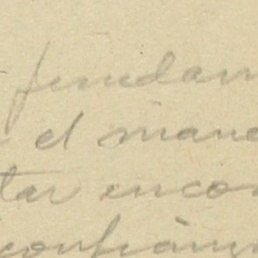 fundam
el mane
tar encon
confián